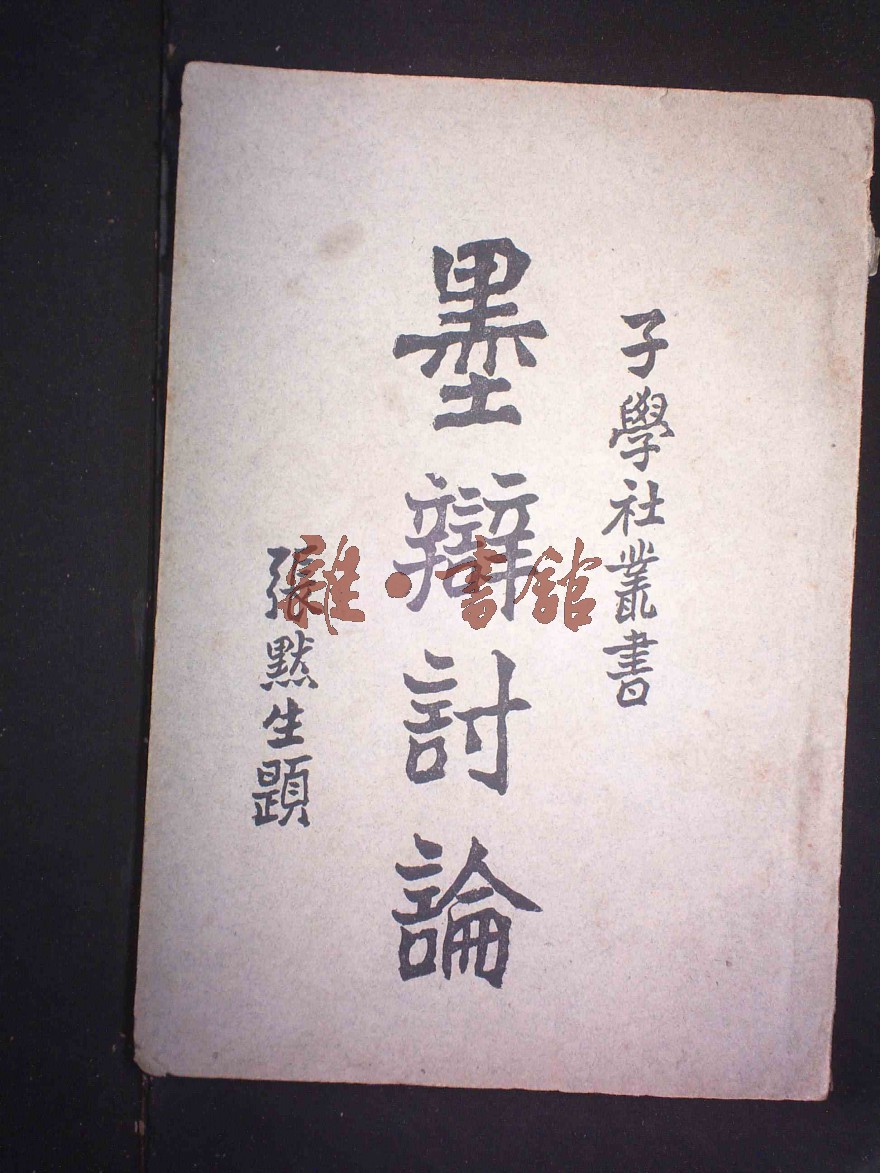 子學社叢書
墨辯討論
張默生題
雜·書館